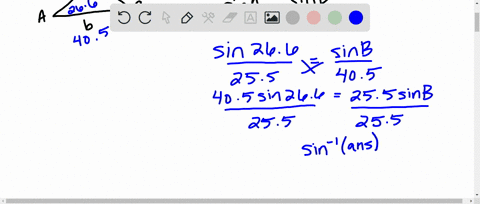 A 26.6
b
40.5
sin 26.6 / 25.5 = sinB / 40.5
40.5 sin 26.6 / 25.5 = 25.5 sinB / 25.5
sin⁻¹(ans)